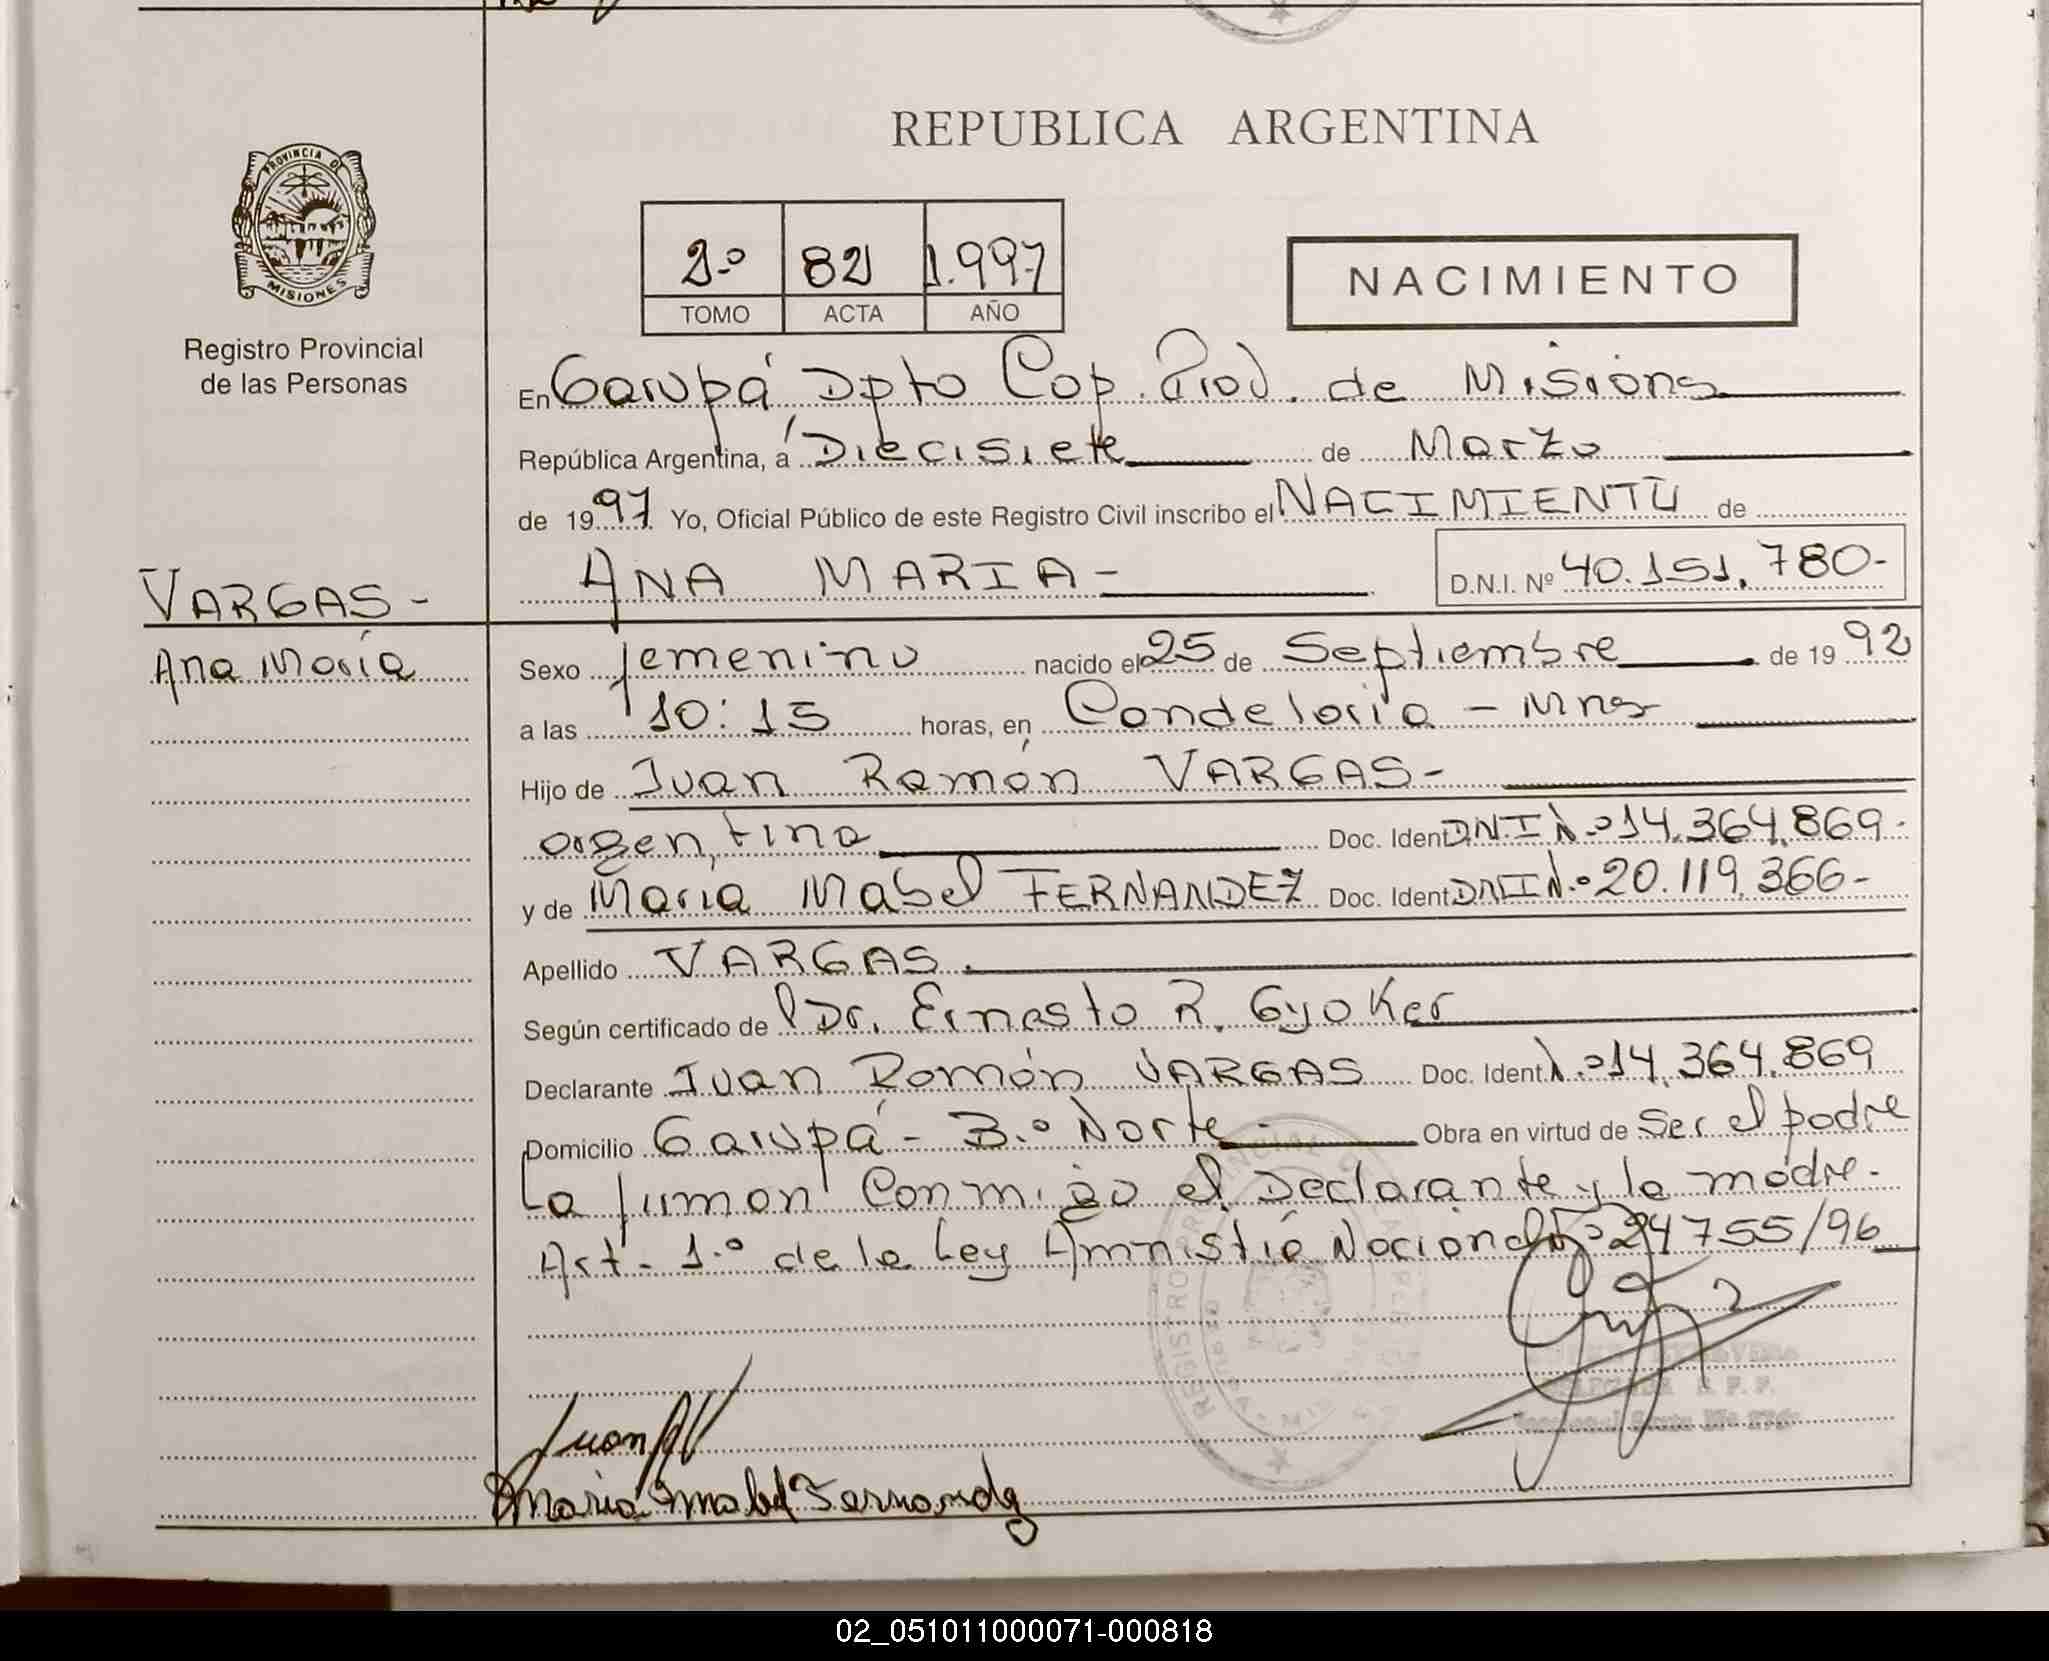 REPUBLICA ARGENTINA
PROVINCIA DE
MISIONES
Registro Provincial
de las Personas
2.º 82 1.997
TOMO ACTA AÑO
NACIMIENTO
En Garupá, Dpto Cap. Prov. de Misions
República Argentina, a Diecisiete de Marzo
de 1997. Yo, Oficial Público de este Registro Civil inscribo el NACIMIENTO de
ANA MARIA - D.N.I. Nº 40.151.780-
VARGAS -
Ana María
Sexo femenino nacido el 25 de Septiembre de 1992
a las 10:15 horas, en Candelaria - Mnes
Hijo de Juan Ramón VARGAS -
argentina Doc. Ident. DNI N.º 14.364.869-
y de María Mabel FERNANDEZ Doc. Ident. DNI N.º 20.119.366-
Apellido VARGAS.
Según certificado de Dr. Ernesto R. Gyoker
Declarante Juan Ramón VARGAS Doc. Ident. N.º 14.364.869
Domicilio Garupá - B.º Norte - Obra en virtud de ser el padre
La firman conmigo el Declarante y la madre.
Art. 1.º de la Ley Amnistía Nacional Nº 24755/96
Juan RV
Maria Mabel Fernandez
02_051011000071-000818